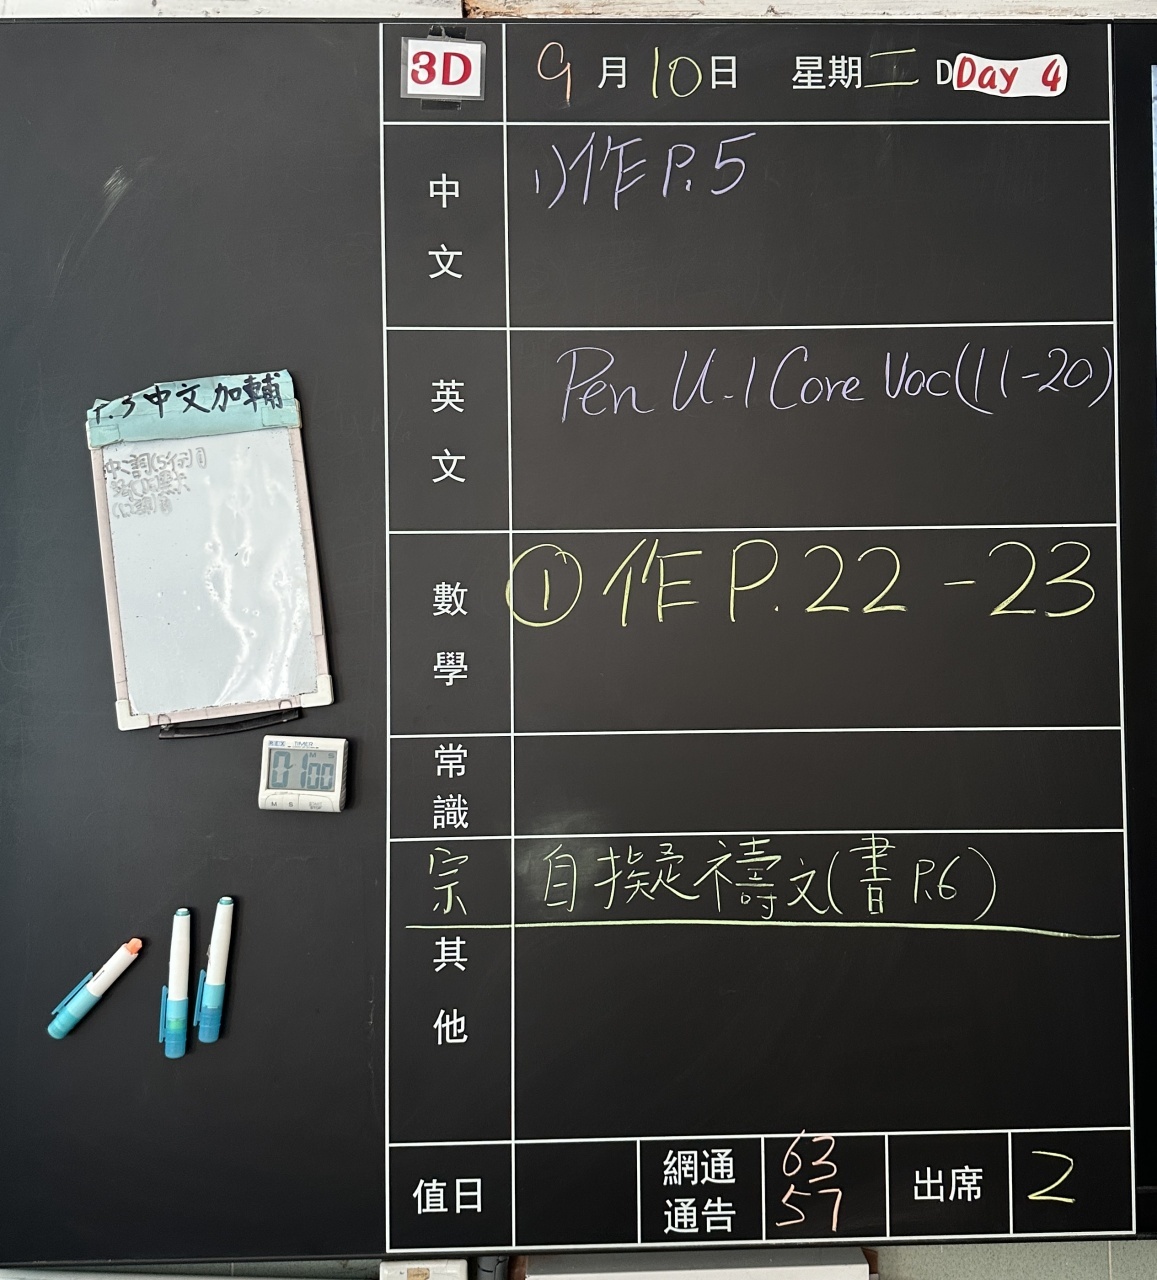 3D 9月10日 星期二 Day 4
中文 1)作P.5
英文 Pen U.1 Core Voc(11-20)
數學 ①作P.22-23
常識
宗 自擬禱文(書P.6)
其他
值日 網通通告 63 57 出席 2
P.3中文加輔
TIMER
01 00
M S